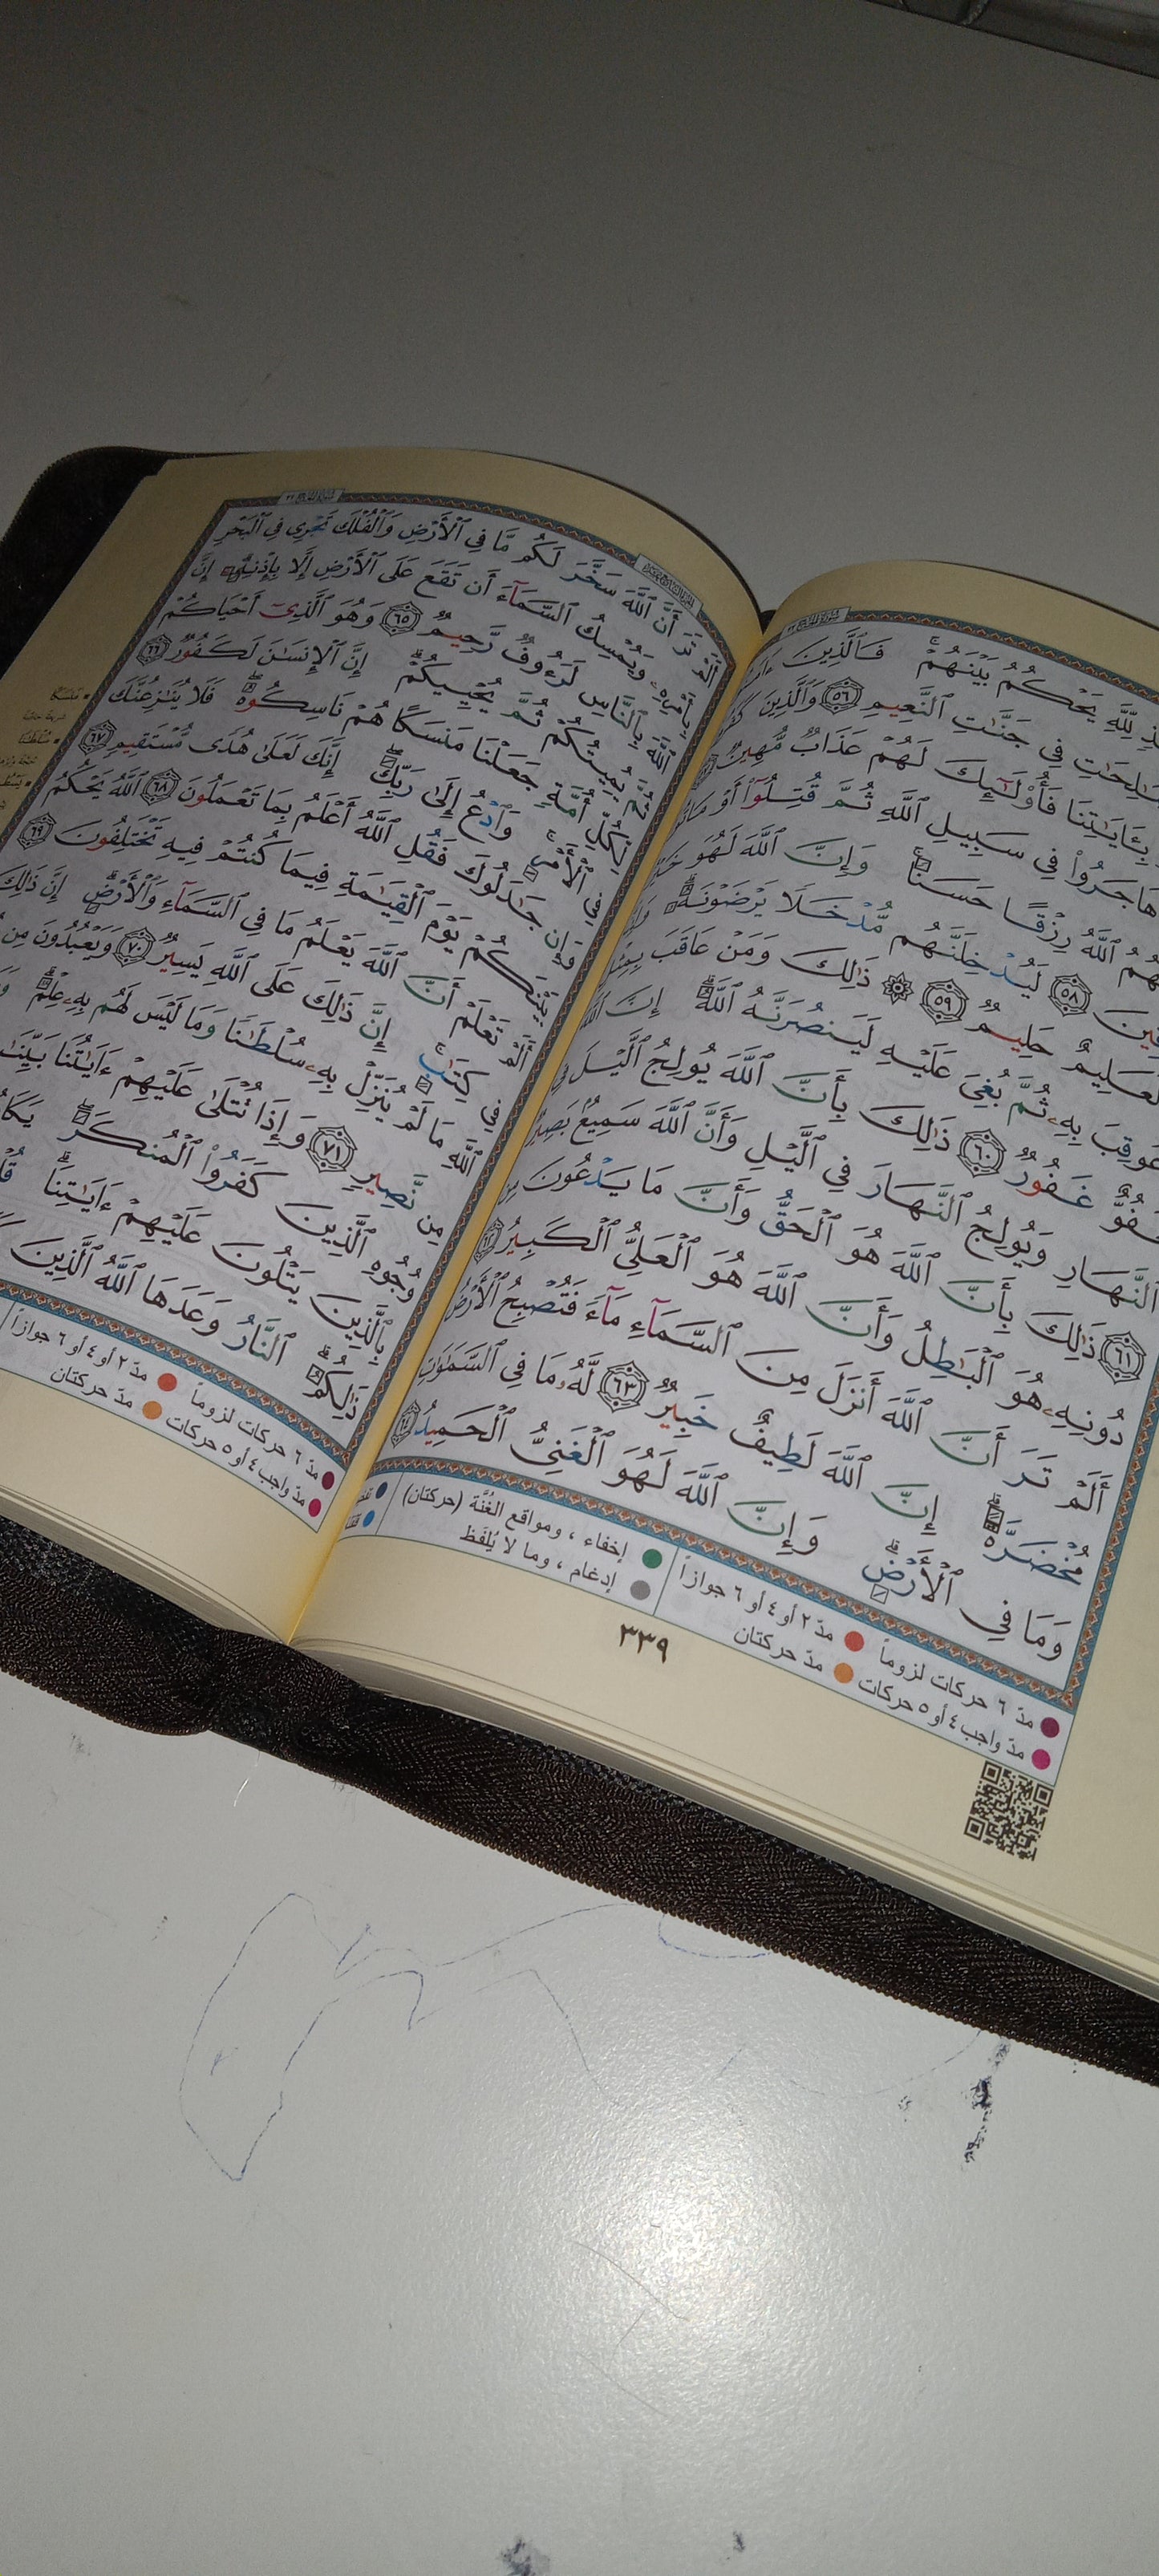 لِّلَّهِ يَحْكُمُ بَيْنَهُمْ ۚ فَٱلَّذِينَ
فِى جَنَّٰتِ ٱلنَّعِيمِ ٥٦ وَٱلَّذِينَ
بِـَٔايَٰتِنَا فَأُو۟لَٰٓئِكَ لَهُمْ عَذَابٌ مُّهِينٌ
هَاجَرُوا۟ فِى سَبِيلِ ٱللَّهِ ثُمَّ قُتِلُوٓا۟ أَوْ
ٱللَّهُ رِزْقًا حَسَنًا ۚ وَإِنَّ ٱللَّهَ لَهُوَ
٥٨ لَيُدْخِلَنَّهُم مُّدْخَلًا يَرْضَوْنَهُۥ ۗ
حَلِيمٌ ٥٩ ۞ ذَٰلِكَ وَمَنْ عَاقَبَ
عُوقِبَ بِهِۦ ثُمَّ بُغِىَ عَلَيْهِ لَيَنصُرَنَّهُ ٱللَّهُ ۗ إِنَّ
غَفُورٌ ٦٠ ذَٰلِكَ بِأَنَّ ٱللَّهَ يُولِجُ ٱلَّيْلَ
ٱلنَّهَارِ وَيُولِجُ ٱلنَّهَارَ فِى ٱلَّيْلِ وَأَنَّ ٱللَّهَ سَمِيعٌۢ بَصِيرٌ
٦١ ذَٰلِكَ بِأَنَّ ٱللَّهَ هُوَ ٱلْحَقُّ وَأَنَّ مَا يَدْعُونَ مِن
دُونِهِۦ هُوَ ٱلْبَٰطِلُ وَأَنَّ ٱللَّهَ هُوَ ٱلْعَلِىُّ ٱلْكَبِيرُ ٦٢
أَلَمْ تَرَ أَنَّ ٱللَّهَ أَنزَلَ مِنَ ٱلسَّمَآءِ مَآءً فَتُصْبِحُ ٱلْأَرْضُ
مُخْضَرَّةً ۗ إِنَّ ٱللَّهَ لَطِيفٌ خَبِيرٌ ٦٣ لَّهُۥ مَا فِى ٱلسَّمَٰوَٰتِ
وَمَا فِى ٱلْأَرْضِ ۗ وَإِنَّ ٱللَّهَ لَهُوَ ٱلْغَنِىُّ ٱلْحَمِيدُ ٦٤
مدّ ٦ حركات لزوماً مدّ ٢ أو ٤ أو ٦ جوازاً
مدّ واجب ٤ أو ٥ حركات مدّ حركتان
إخفاء ، ومواقع الغُنَّة (حركتان)
إدغام ، وما لا يُلفَظ
٣٣٩
أَلَمْ تَرَ أَنَّ ٱللَّهَ سَخَّرَ لَكُم مَّا فِى ٱلْأَرْضِ وَٱلْفُلْكَ تَجْرِى فِى ٱلْبَحْرِ
بِأَمْرِهِۦ وَيُمْسِكُ ٱلسَّمَآءَ أَن تَقَعَ عَلَى ٱلْأَرْضِ إِلَّا بِإِذْنِهِۦٓ ۗ إِنَّ
ٱللَّهَ بِٱلنَّاسِ لَرَءُوفٌ رَّحِيمٌ ٦٥ وَهُوَ ٱلَّذِىٓ أَحْيَاكُمْ
ثُمَّ يُمِيتُكُمْ ثُمَّ يُحْيِيكُمْ ۗ إِنَّ ٱلْإِنسَٰنَ لَكَفُورٌ ٦٦
لِّكُلِّ أُمَّةٍ جَعَلْنَا مَنسَكًا هُمْ نَاسِكُوهُ ۖ فَلَا يُنَٰزِعُنَّكَ
فِى ٱلْأَمْرِ ۚ وَٱدْعُ إِلَىٰ رَبِّكَ ۖ إِنَّكَ لَعَلَىٰ هُدًى مُّسْتَقِيمٍ ٦٧
وَإِن جَٰدَلُوكَ فَقُلِ ٱللَّهُ أَعْلَمُ بِمَا تَعْمَلُونَ ٦٨ ٱللَّهُ يَحْكُمُ
بَيْنَكُمْ يَوْمَ ٱلْقِيَٰمَةِ فِيمَا كُنتُمْ فِيهِ تَخْتَلِفُونَ ٦٩
أَلَمْ تَعْلَمْ أَنَّ ٱللَّهَ يَعْلَمُ مَا فِى ٱلسَّمَآءِ وَٱلْأَرْضِ ۗ إِنَّ ذَٰلِكَ
فِى كِتَٰبٍ ۚ إِنَّ ذَٰلِكَ عَلَى ٱللَّهِ يَسِيرٌ ٧٠ وَيَعْبُدُونَ مِن
ٱللَّهِ مَا لَمْ يُنَزِّلْ بِهِۦ سُلْطَٰنًا وَمَا لَيْسَ لَهُم بِهِۦ عِلْمٌ ۗ
مِن نَّصِيرٍ ٧١ وَإِذَا تُتْلَىٰ عَلَيْهِمْ ءَايَٰتُنَا بَيِّنَٰتٍ
وُجُوهِ ٱلَّذِينَ كَفَرُوا۟ ٱلْمُنكَرَ ۖ
بِٱلَّذِينَ يَتْلُونَ عَلَيْهِمْ ءَايَٰتِنَا ۗ
ذَٰلِكُمُ ۗ ٱلنَّارُ وَعَدَهَا ٱللَّهُ ٱلَّذِينَ
مدّ ٦ حركات لزوماً مدّ ٢ أو ٤ أو ٦ جوازاً
مدّ واجب ٤ أو ٥ حركات مدّ حركتان